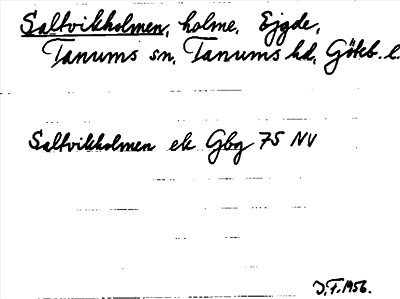 Saltvikholmen, holme, Ejgde,
Tanums sn, Tanums hd, Göteb. l.
Saltvikholmen ek Gbg 75 NV
J.F. 1956.